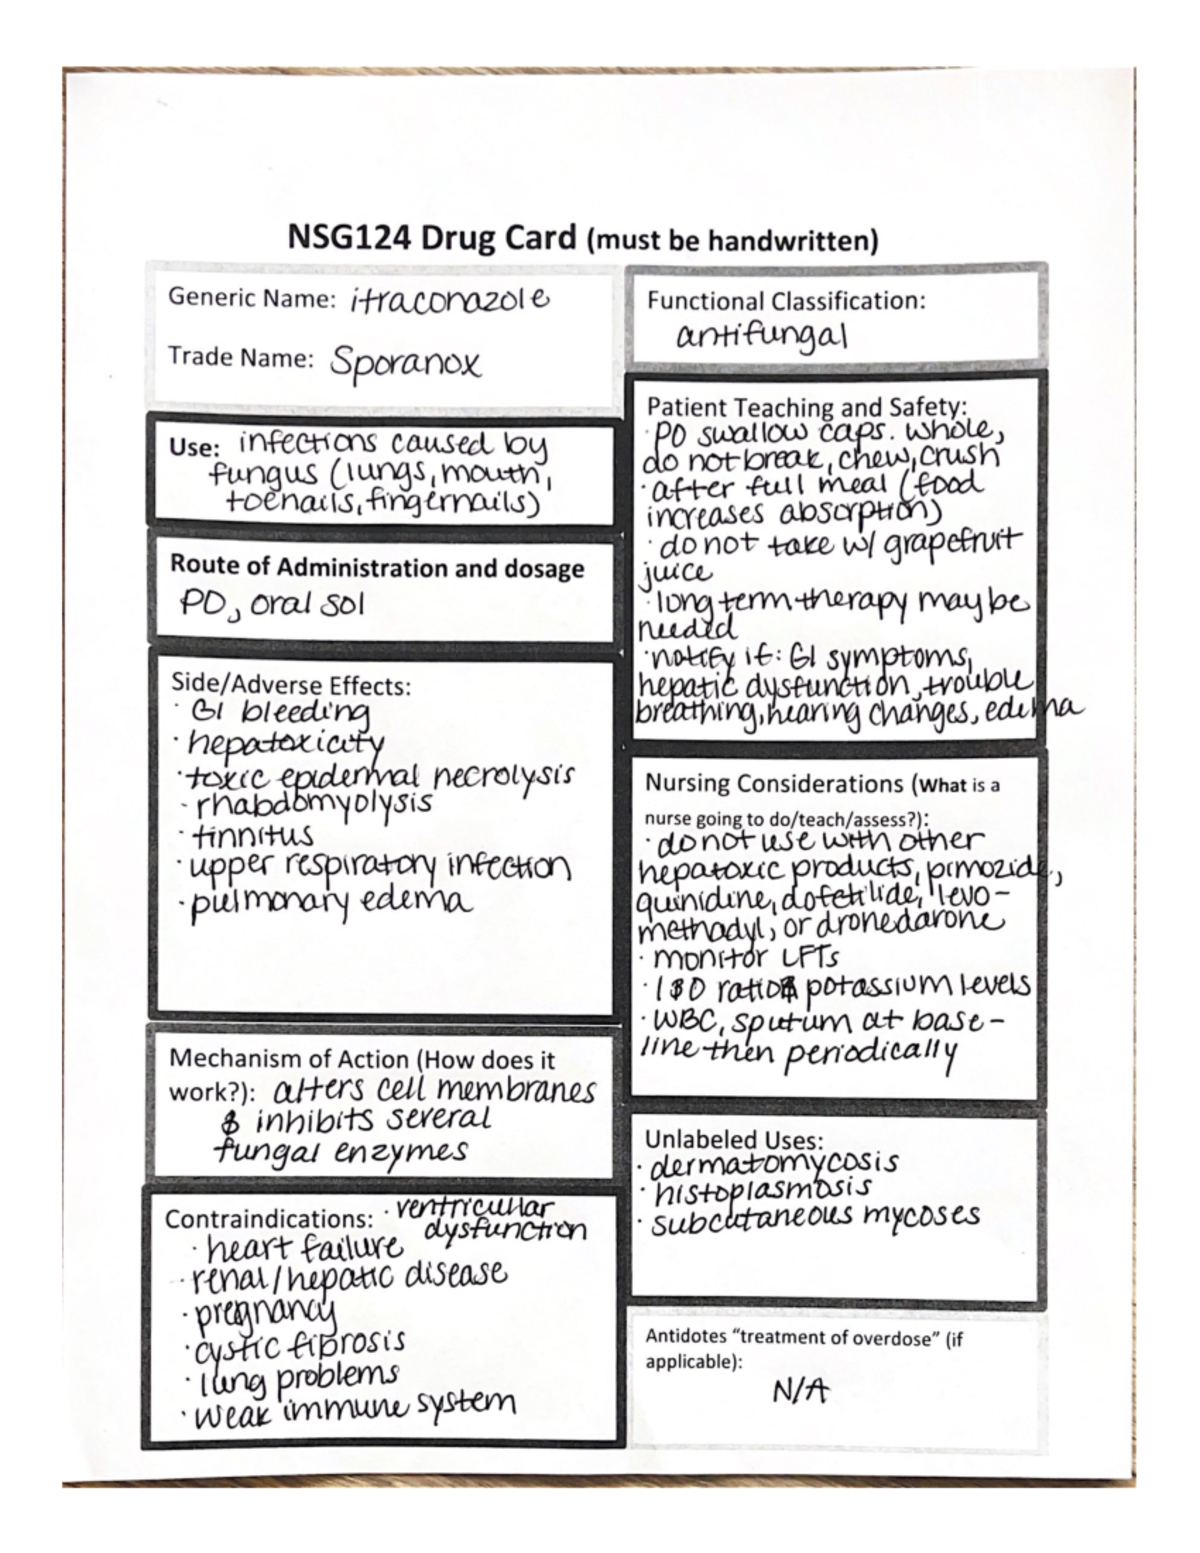 NSG124 Drug Card (must be handwritten)
Generic Name: itraconazole
Trade Name: Sporanox
Use: infections caused by
fungus (lungs, mouth,
toenails, fingernails)
Route of Administration and dosage
PO, oral sol
Side/Adverse Effects:
· GI bleeding
· hepatoxicity
· toxic epidermal necrolysis
- rhabdomyolysis
· tinnitus
· upper respiratory infection
· pulmonary edema
Mechanism of Action (How does it
work?): alters cell membranes
& inhibits several
fungal enzymes
Contraindications: · ventricular
dysfunction
· heart failure
· renal/hepatic disease
· pregnancy
· cystic fibrosis
· lung problems
· weak immune system
Functional Classification:
antifungal
Patient Teaching and Safety:
· PO swallow caps. whole,
do not break, chew, crush
· after full meal (food
increases absorption)
· do not take w/ grapefruit
juice
· long term therapy may be
needed
· notify if: GI symptoms,
hepatic dysfunction, trouble
breathing, hearing changes, edema
Nursing Considerations (What is a
nurse going to do/teach/assess?):
· do not use with other
hepatoxic products, pimozide,
quinidine, dofetilide, levo-
methadyl, or dronedarone
· monitor LFTs
· I&O ratio & potassium levels
· WBC, sputum at base-
line then periodically
Unlabeled Uses:
· dermatomycosis
· histoplasmosis
· subcutaneous mycoses
Antidotes “treatment of overdose” (if
applicable):
N/A